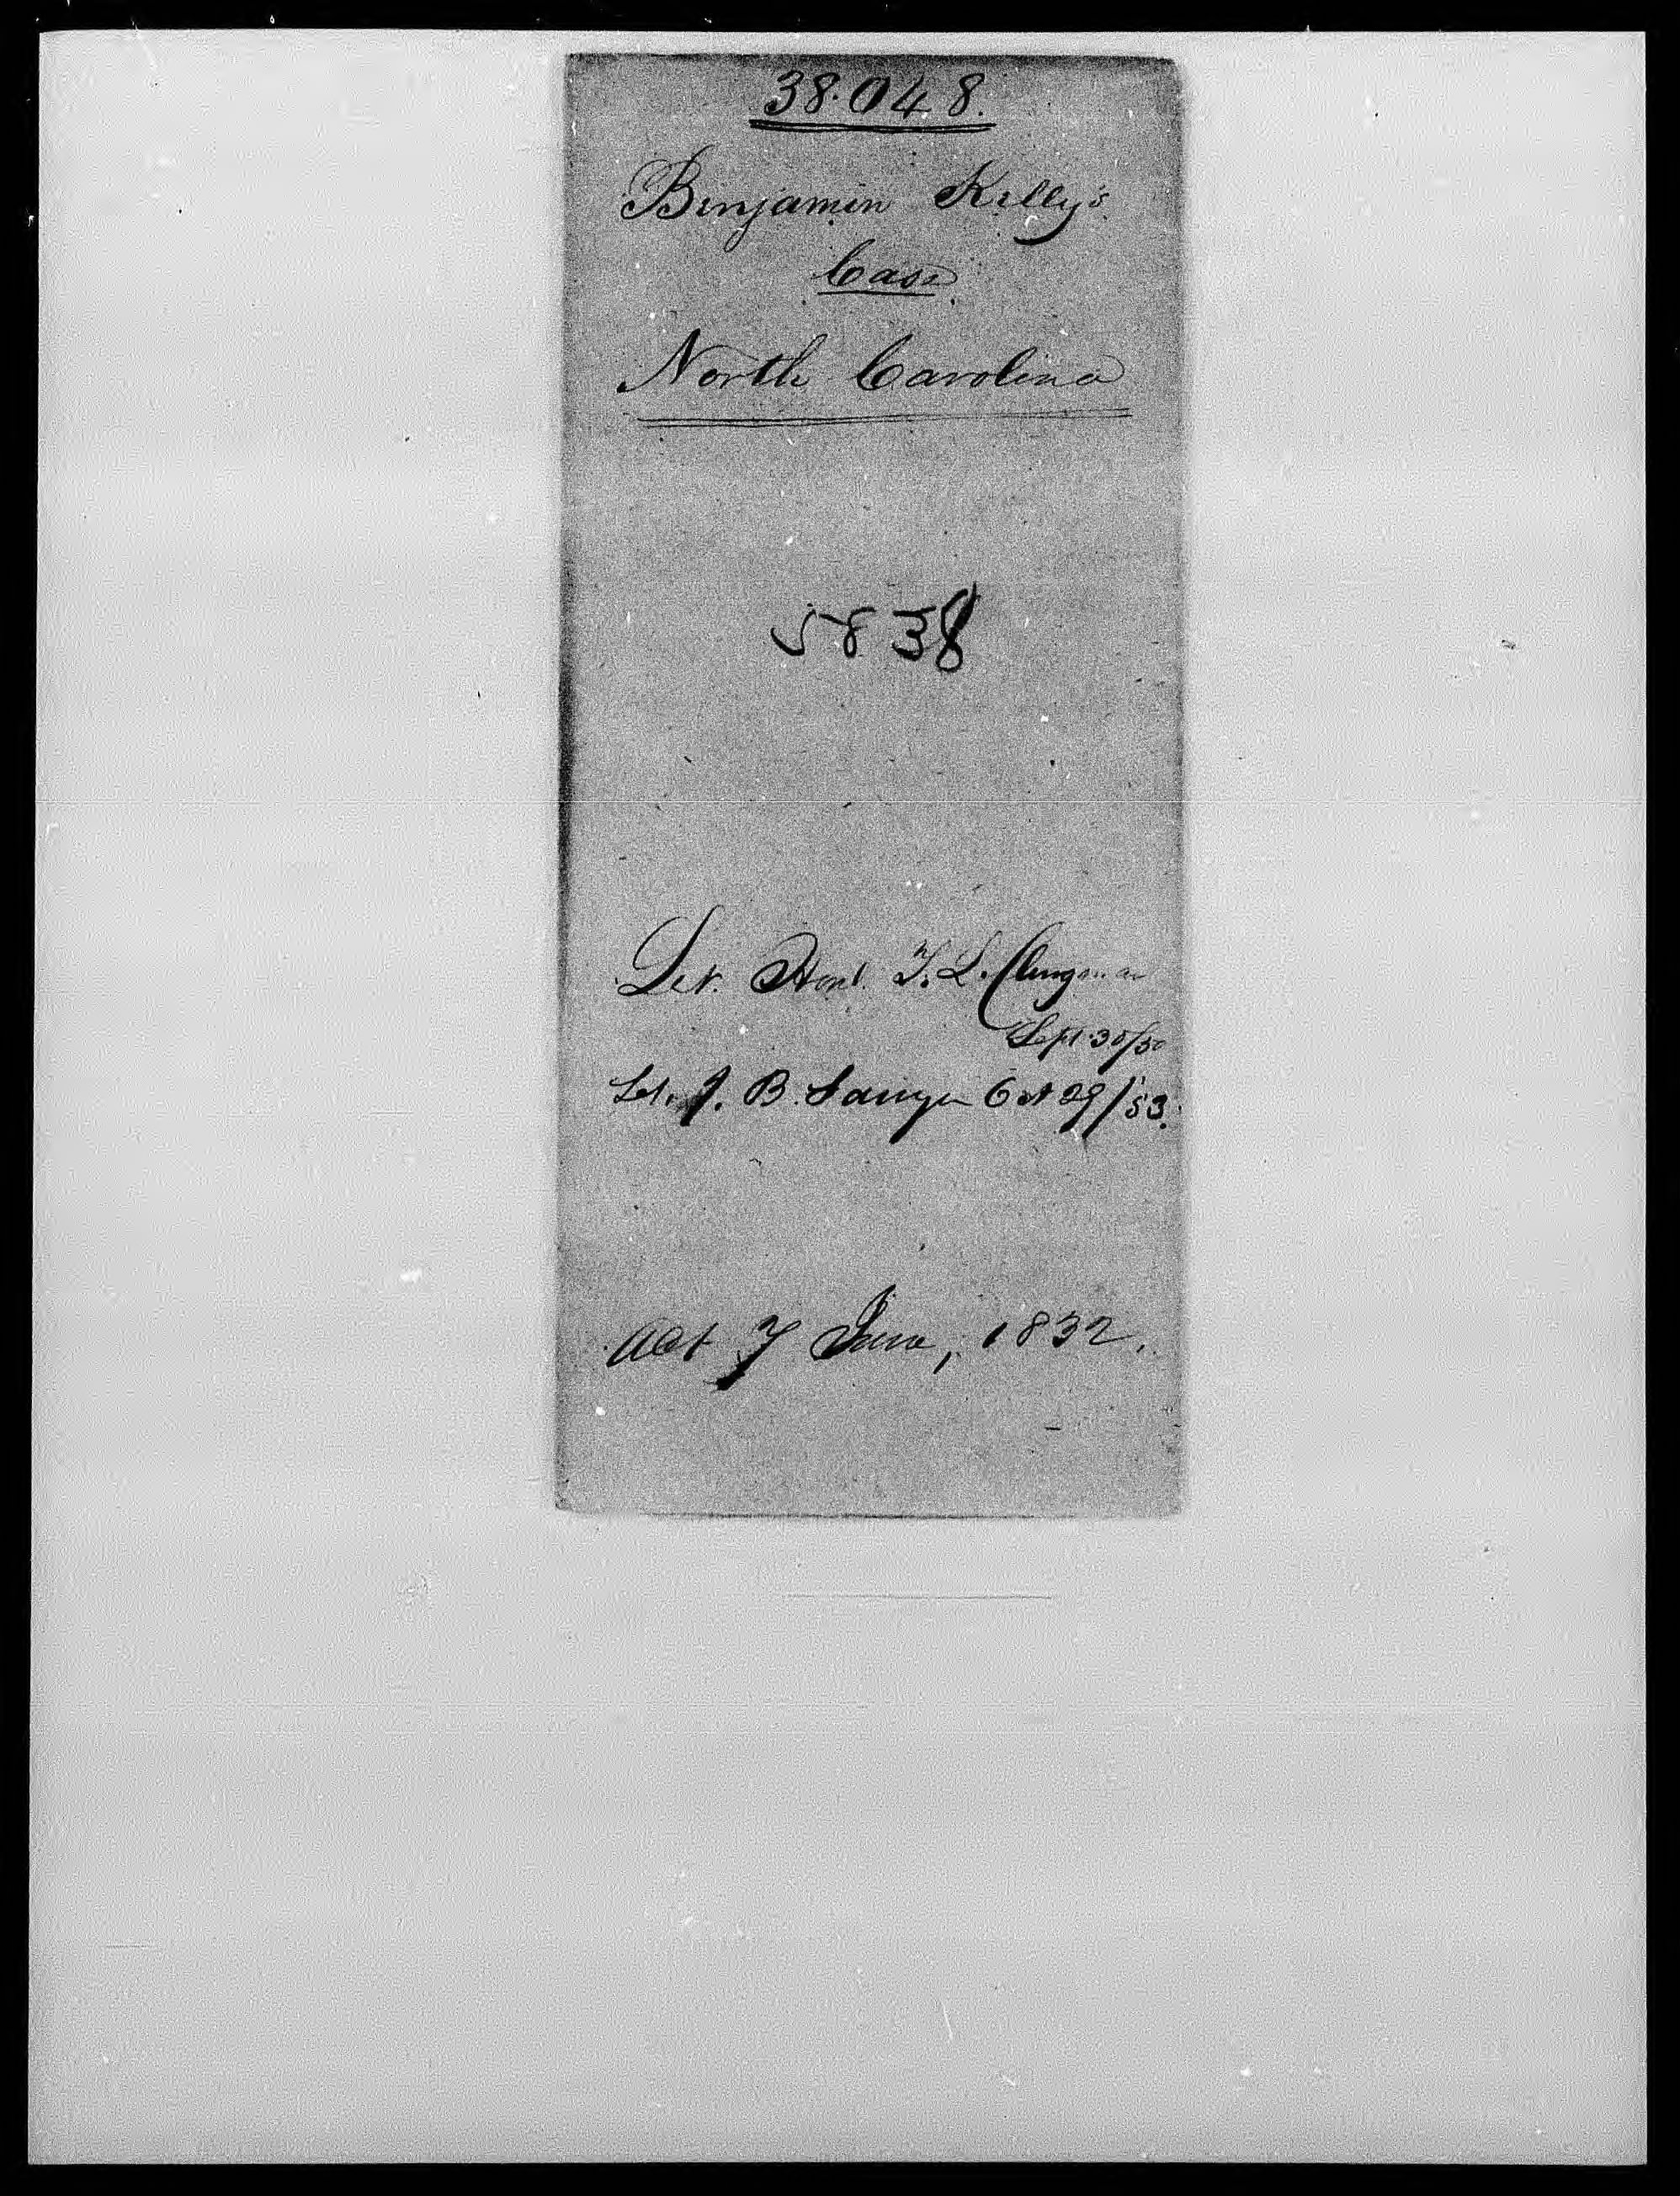 38.048.
Benjamin Kelly's
Case
North Carolina
5838
Let. Honl. T. L. Clingman
Sept. 30/50
Let. J. B. Sawyer Oct 29/53.
Act 7 June, 1832.